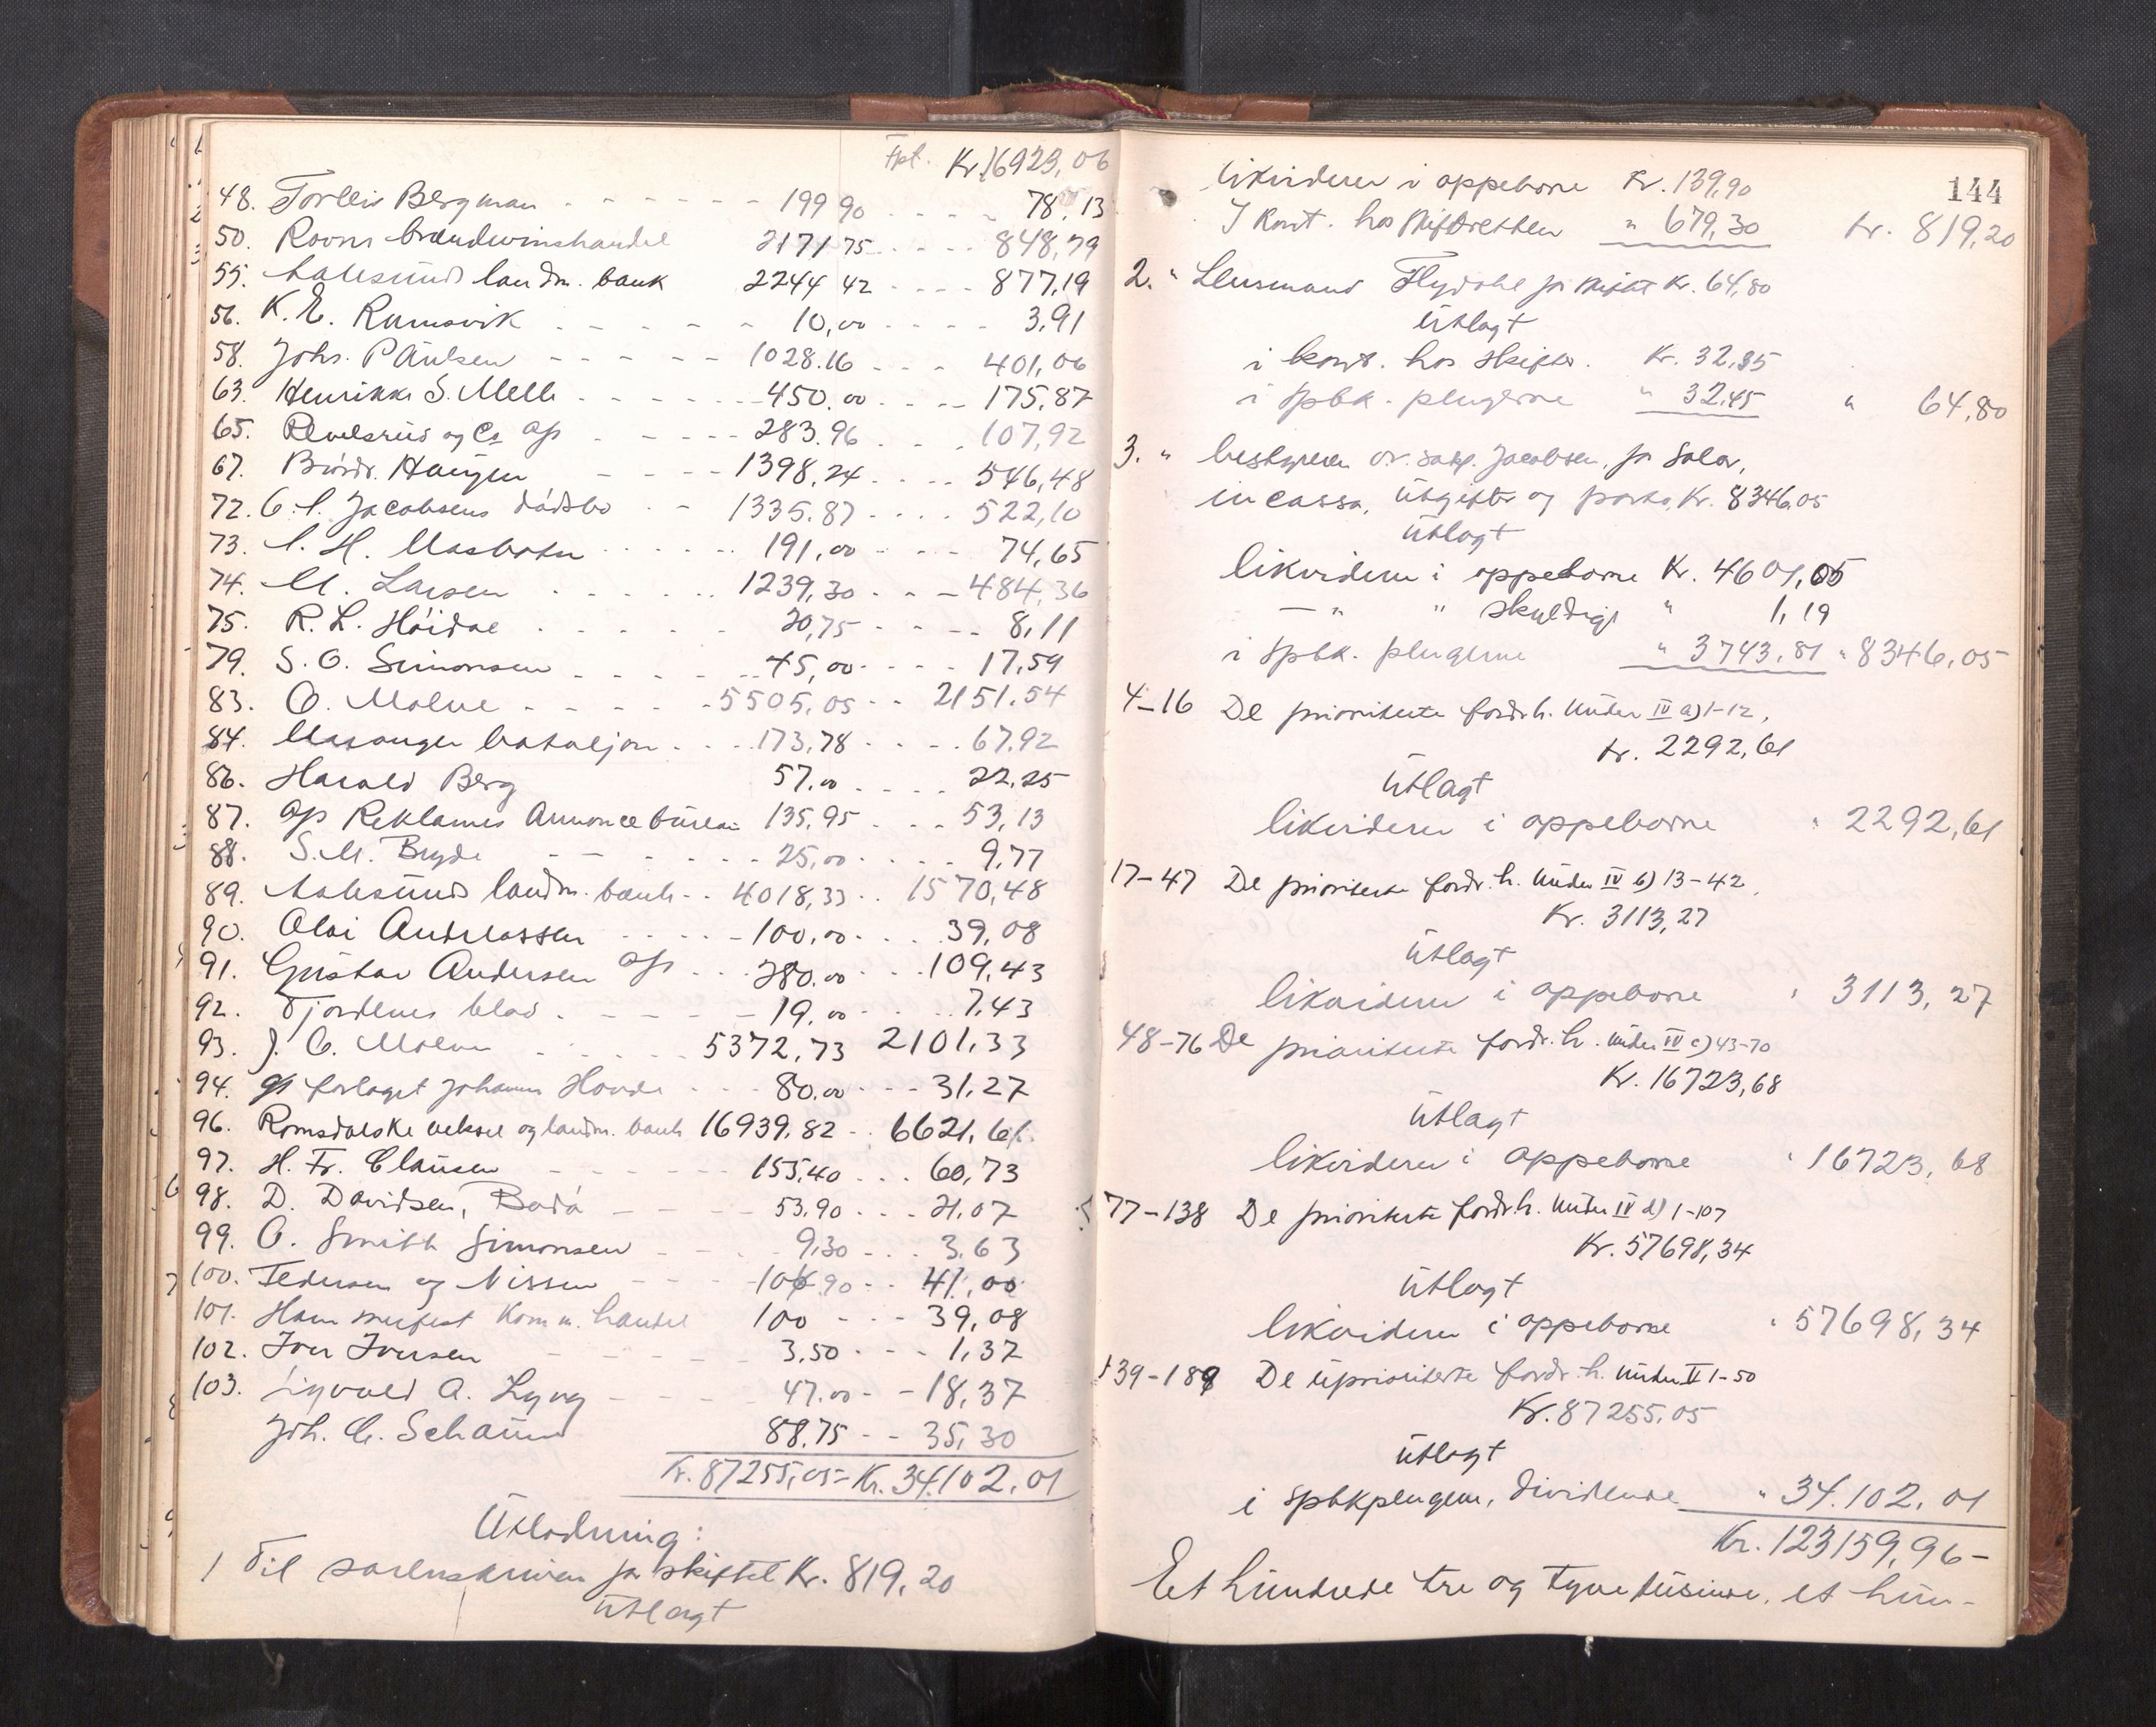 Fpt. Kr. 16923,06
48. Torleiv Bergman - - - - - - 199 90 - - - - 78,13
50. Rovns brændevinshandel 2171 75 - - - - 848,79
55. Aalesunds landm. bank 2244 42 - - - - 877,19
56. K. E. Ramsvik - - - - - 10,00 - - - - 3,91
58. Johs. Paulsen - - - - - 1028.16 - - - 401,06
63. Henrikke S. Melle - - - - - 450.00 - - - 175,87
65. og Co a/s - - - - - 283.96 - - - 107,92
67. Brødr. Haugen - - - - 1398,24 - - - - 546,48
72. C. A. Jacobsens dødsbo - - 1335.87 - - - - 522,10
73. A. H. - - - - - 191,00 - - - 74,65
74. M. Larsen - - - - - 1239,30 - - - 484,36
75. R. L. Høidal - - - - - 20,75 - - - - 8,11
79. S. O. Simonsen - - - - - 45,00 - - - - 17,59
83. O. Molne - - - - - 5505,05 - - 2151.54
84. bataljon - - - 173,78 - - - - 67,92
86. Harald Berg 57.00 - - - - 22,25
87. a/s Reklames Annoncebureau 135,95 - - - 53,13
88. S. M. Bryde - - - - - 25,00 - - - - 9,77
89. Aalesunds landm. bank - - 4018,33 - - 1570,48
90. Olai Andreassen - - - - - 100,00 - - - 39,08
91. Gustav Andersen a/s - - - 280.00 - - - 109,43
92. Fjordenes blad - - - - - 19,00 - - - 7,43
93. J. O. Molne - - - - - 5372,73 2101,33
94. a/s forlaget Johannes Hovde - - - 80.00 - - - 31,27
96. Romsdalske veksel og landm. bank 16939.82 - - 6621,61
97. H. Fr. Clausen - - - - - 155,40 - - - 60,73
98. D. Davidsen, Bodø - - - - 53.90 - - - 21,07
99. O. Smith Simonsen - - - 9,30 - - - 3.63
100. Pedersen og Nissen - - - 104.90 - - 41,00
101. Hammerfest Komm. handel 100 - - - 39,08
102. Iver Iversen - - - - - 3,50 - - - 1,37
103. Sigvald A. Lyng - - - 47.00 - - 18,37
Joh. C. Schaum 88,75 - - 35,30
Kr. 87255,05 = Kr. 34.102,01
Utlodning:
1 Til sorenskriveren for skiftet Kr. 819,20
Utlagt
144
likvideres i oppebørne Kr. 139,90
I kont. hos skifteretten " 679,30 Kr. 819,20
2. " Lensmand Flydahl for skiftet Kr. 64,80
Utlagt
i kont. hos skifter. Kr. 32,35
i spbk. pengerne " 32.45 " 64,80
3. " bestyreren or. sakf. Jacobsen, for salar,
incasso, utgifter og porto, Kr. 8346,05
Utlagt
likvideres i oppebørne Kr. 4601,05
— " " skyldige " 1,19
i spbk. pengerne " 3743,81 " 8346,05
4-16 De prioriterte fordr.h. under IV a) 1-12,
Kr. 2292,61
Utlagt
likvideres i oppebørne " 2292,61
17-47 De prioriterte fordr.h. under IV b) 13-42,
Kr. 3113,27
Utlagt
likvideres i oppebørne " 3113,27
48-76 De prioriterte fordr.h. under IV c) 43-70
Kr. 16723,68
Utlagt
likvideres i oppebørne " 16723,68
77-138 De prioriterte fordr.h. under IV d) 1-107
Kr. 57698,34
Utlagt
likvideres i oppebørne " 57698,34
139-189 De uprioriterte fordr.h. under V 1-50
Kr. 87255,05
Utlagt
i spbkpengene, dividende " 34.102,01
Kr. 123159,96 -
Et hundrede tre og tyve tusinde, et hun-